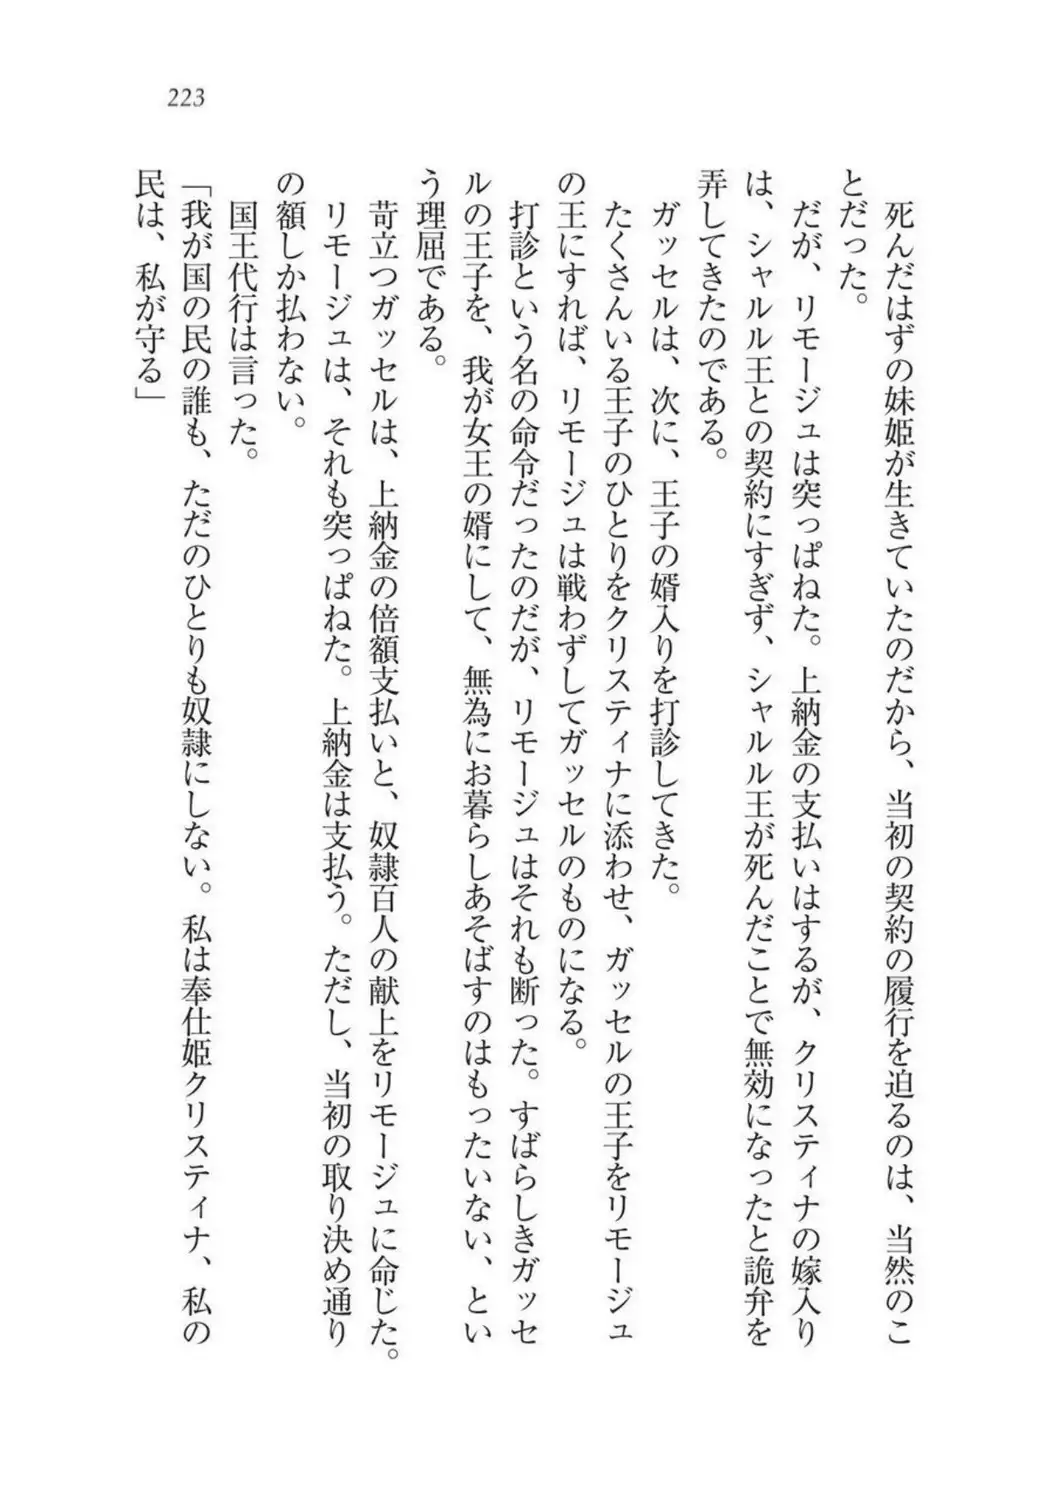 223
死んだはずの妹姫が生きていたのだから、当初の契約の履行を迫るのは、当然のこ
とだった。
だが、リモージュは突っぱねた。上納金の支払いはするが、クリスティナの嫁入り
は、シャルル王との契約にすぎず、シャルル王が死んだことで無効になったと詭弁を
弄してきたのである。
ガッセルは、次に、王子の婿入りを打診してきた。
たくさんいる王子のひとりをクリスティナに添わせ、ガッセルの王子をリモージュ
の王にすれば、リモージュは戦わずしてガッセルのものになる。
打診という名の命令だったのだが、リモージュはそれも断った。すばらしきガッセ
ルの王子を、我が女王の婿にして、無為にお暮らしあそばすのはもったいない、とい
う理屈である。
苛立つガッセルは、上納金の倍額支払いと、奴隷百人の献上をリモージュに命じた。
リモージュは、それも突っぱねた。上納金は支払う。ただし、当初の取り決め通り
の額しか払わない。
国王代行は言った。
「我が国の民の誰も、ただのひとりも奴隷にしない。私は奉仕姫クリスティナ、私の
民は、私が守る」